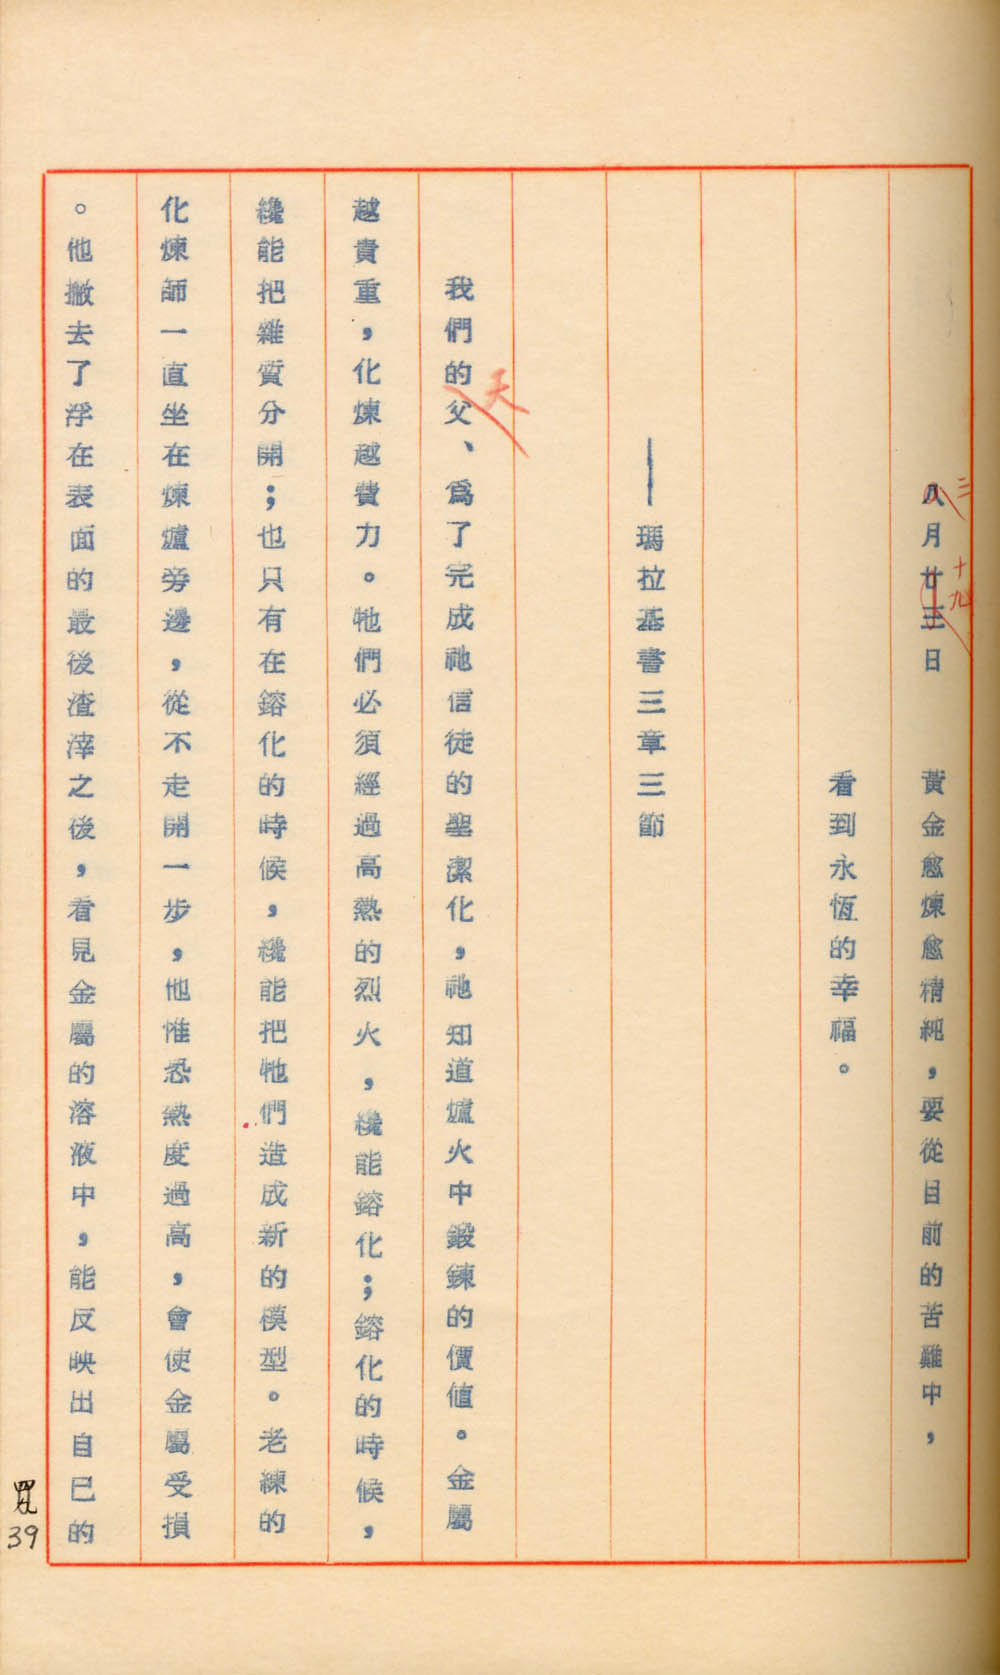 八月廿三日　　黃金愈煉愈精純，要從目前的苦難中，
三
十九
看到永恆的幸福。
——瑪拉基書三章三節
我們的父、爲了完成祂信徒的聖潔化，祂知道爐火中鍛鍊的價值。金屬
天
越貴重，化煉越費力。牠們必須經過高熱的烈火，纔能鎔化；鎔化的時候，
纔能把雜質分開；也只有在鎔化的時候，纔能把牠們造成新的模型。老練的
化煉師一直坐在煉爐旁邊，從不走開一步，他惟恐熱度過高，會使金屬受損
。他撇去了浮在表面的最後渣滓之後，看見金屬的溶液中，能反映出自已的
39